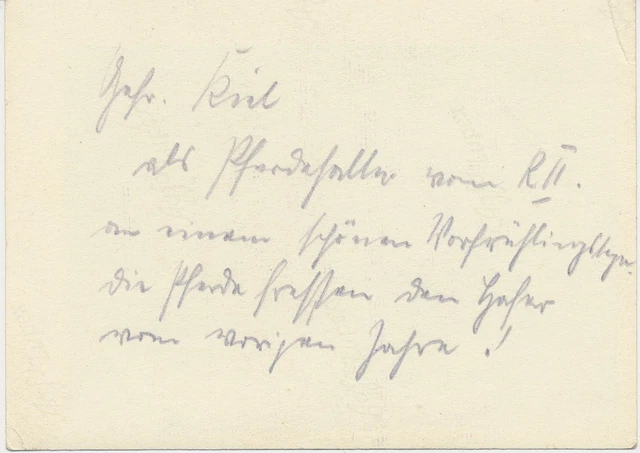 Gefr. Kiel
als Pferdehalter vom R II.
an einem schönen Vorfrühlingstage.
die Pferde fressen den Hafer
vom vorigen Jahre!